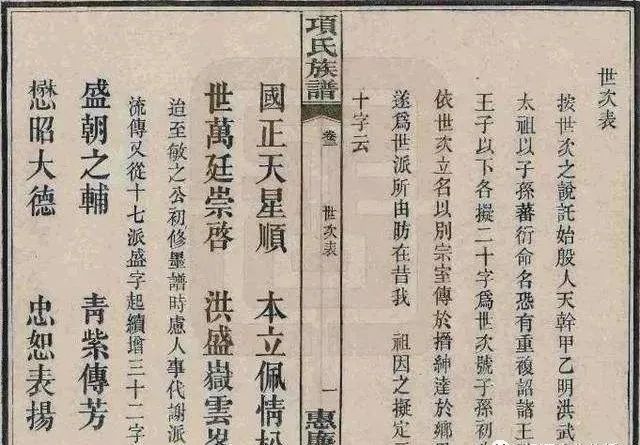 世次表
按世次之說託始殷人天幹甲乙明洪武
太祖以子孫蕃衍命名恐有重複詔諸王
王子以下各擬二十字爲世次號子孫初
依世次立名以別宗室傳於搢紳達於鄉
遂爲世派所由昉在昔我　祖因之擬定
十字云
項氏族譜　卷　世次表　一　惠
國正天星順　本立佩情
世萬廷崇啓　洪盛嶽雲
迨至敏之公初修墨譜時慮人事代謝派
流傳又從十七派盛字起續增三十二字
盛朝之輔　青紫傳芳
懋昭大德　忠恕表揚